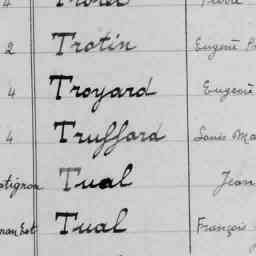 2 Trotin Eugene
4 Troyard Eugene
4 Truffard Louis Ma
Tual Jean
Tual François